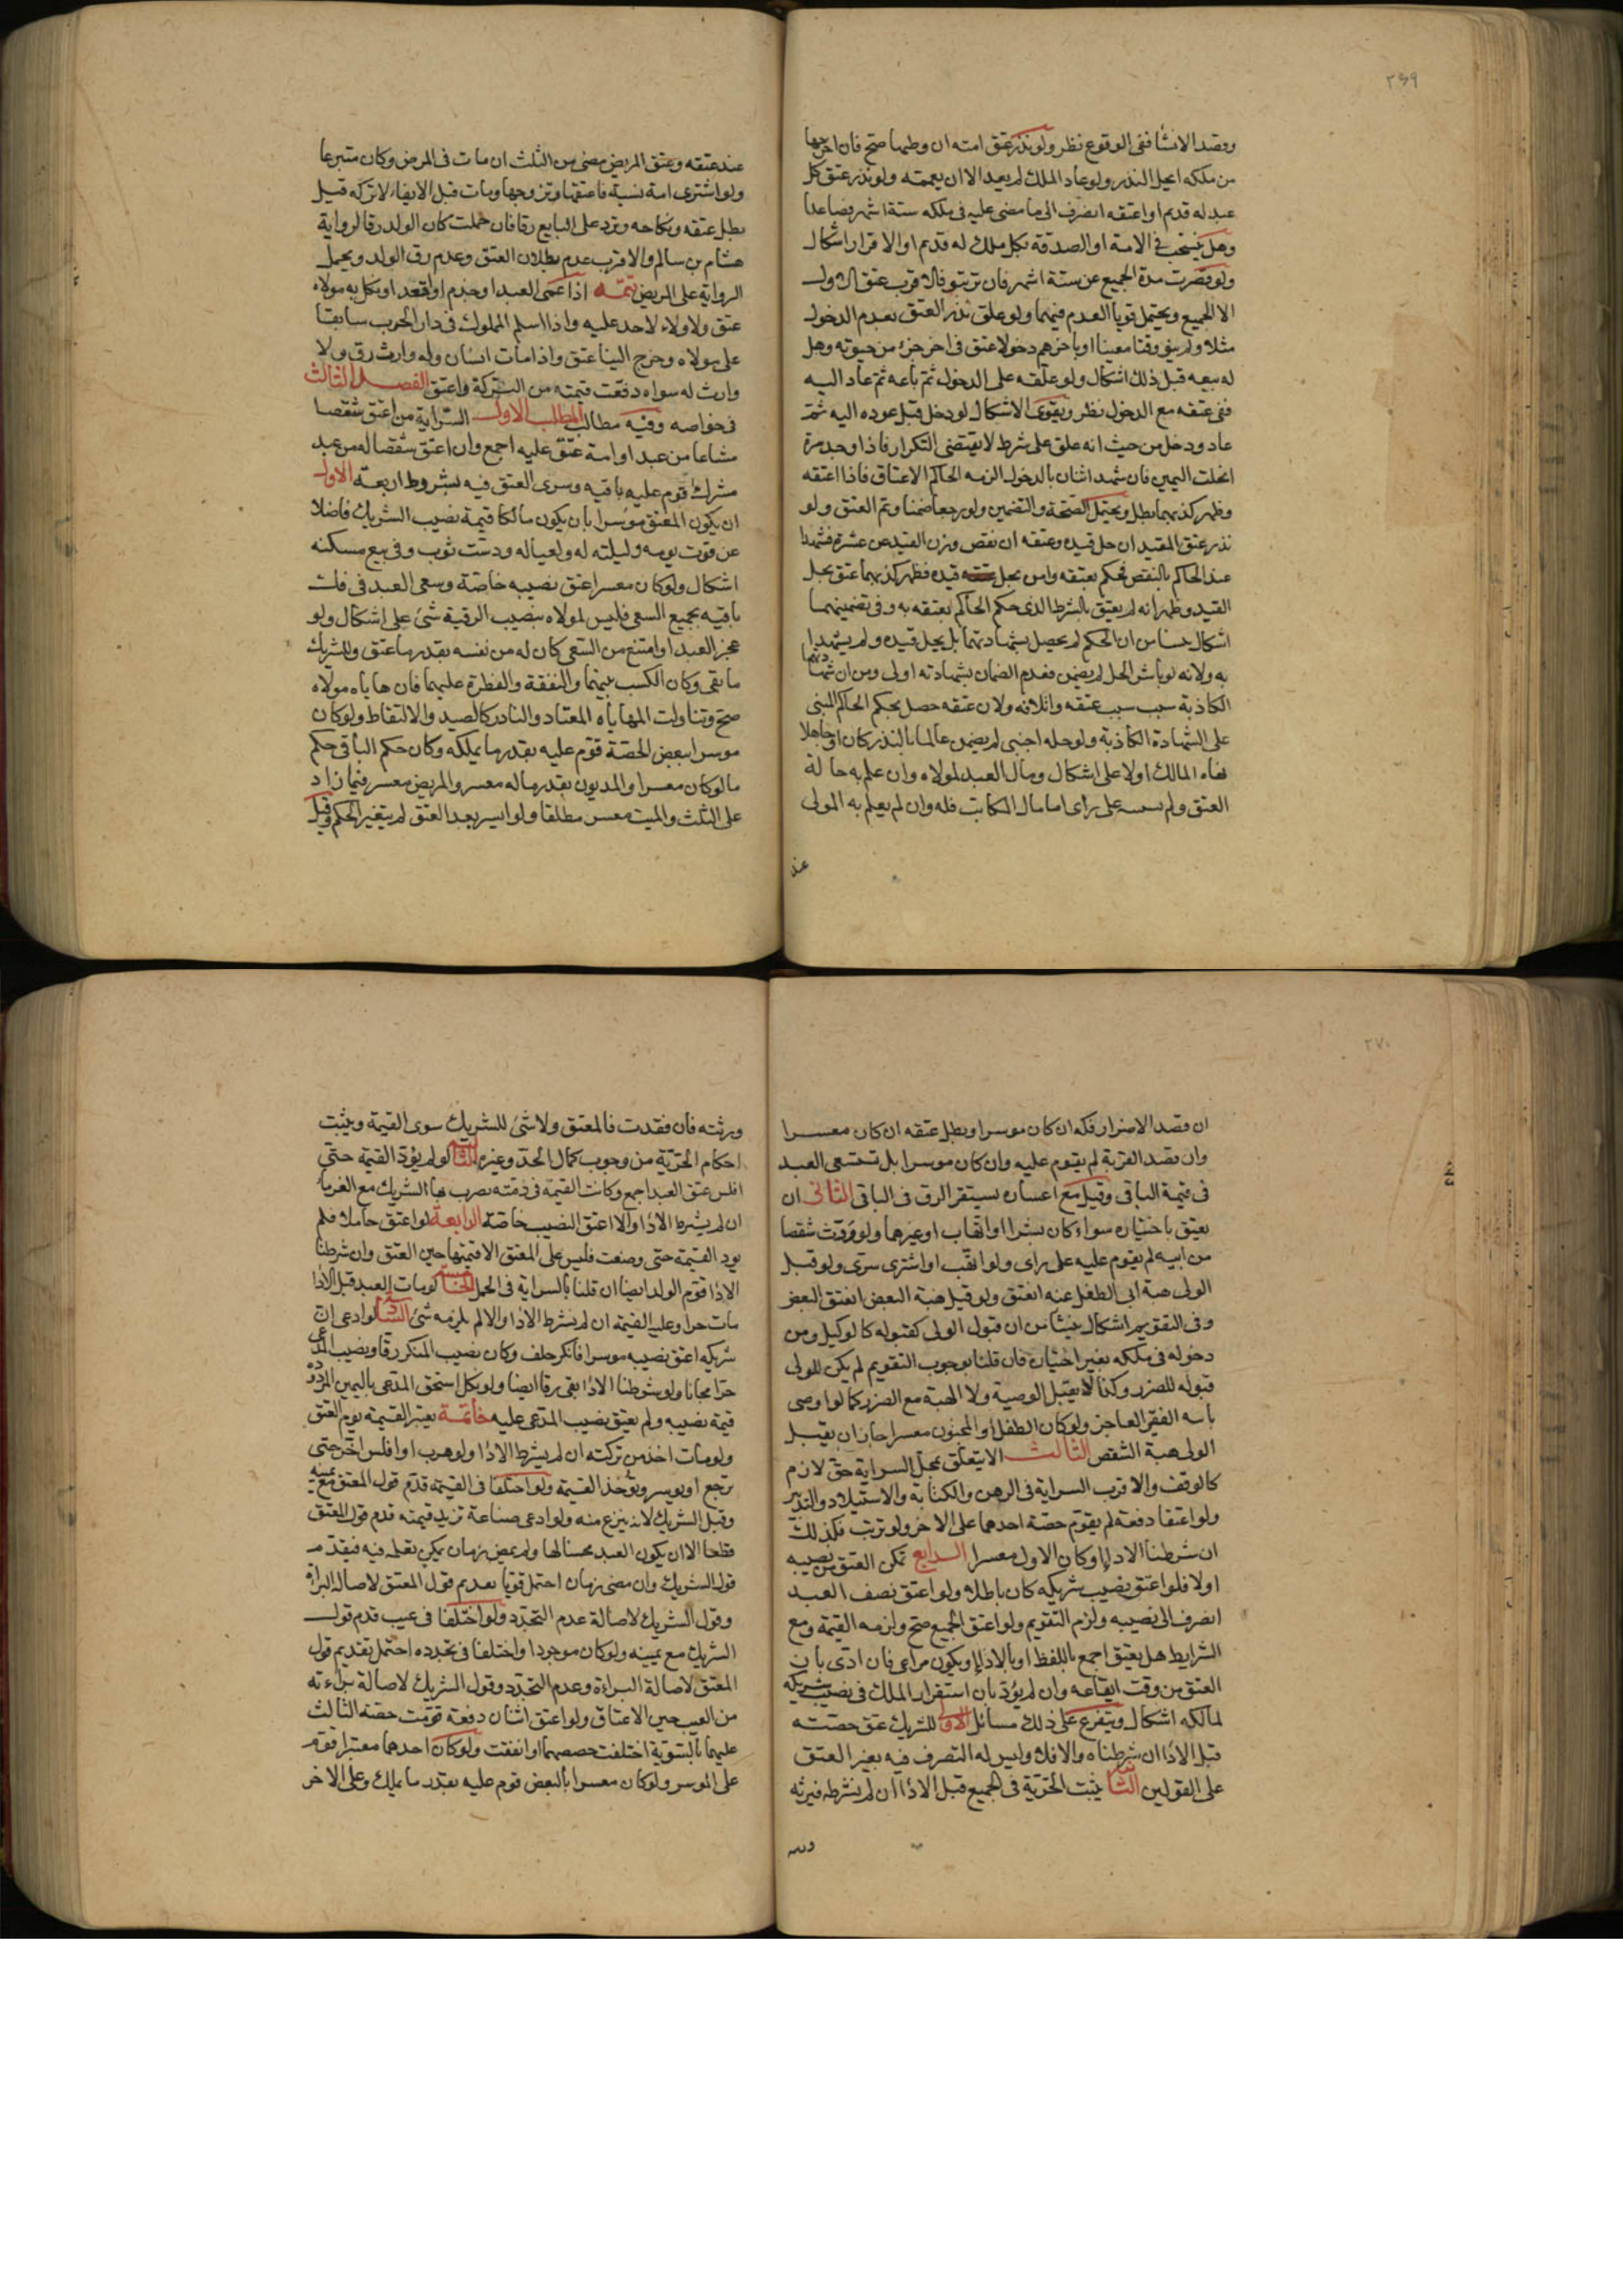 ٢٦٩
وقصد الانشا ففي الوقوع نظر ولو نذر عتق امته ان وطئها صح فان اخرجها
من ملكه انحل النذر ولو عاد الملك لم يعد الا ان يعمه ولو نذر عتق كل
عبد له قديم او اعتقه انصرف الى ما مضى عليه في ملكه ستة اشهر فصاعدا
وهل ينسحب في الامة او الصدقة بكل ملك له قديم او الاقرار اشكال
ولو قصرت مدة الجميع عن ستة اشهر فان ترتبو فالاقرب عتق الاول
الا الجميع ويحتمل قويا العدم فيهما ولو علق نذر العتق بعدم الدخول
مثلا ولم ينو وقتا معينا او باخرهم دخولا عتق في اخر جزء من حيوته وهل
له بيعه قبل ذلك اشكال ولو علقه على الدخول ثم باعه ثم عاد اليه
ففي عتقه مع الدخول نظر ويقوى الاشكال لو دخل قبل عوده اليه ثم
عاد ودخل من حيث انه علق على شرط لا يقتضي التكرار فاذا وجد مرة
انحلت اليمين فان شهد اثنان بالدخول الزمه الحاكم الاعتاق فاذا اعتقه
وظهر كذبهما بطل ويحتمل الصحة والتضمين ولو رجعا ضمنا وتم العتق ولو
نذر عتق المقيد ان حل قيده وعتقه ان نقص وزن القيد عن عشرة فشهدا
عند الحاكم بالنقص فحكم بعتقه وامر بحل قيده فظهر كذبهما عتق بحل
القيد وظهر انه لم يعتق بالشرط الذي حكم الحاكم بعتقه به وفي تضمينهما
اشكال ينشا من ان الحكم لم يحصل بشهادتهما بل بحل قيده ولم يشهدا
به ولانه لو باشر الحل لم يضمن فعدم الضمان بشهادته اولى ومن ان شهادتهما
الكاذبة سبب سبب عتقه واتلافه ولان عتقه حصل بحكم الحاكم المبني
على الشهادة الكاذبة ولو حله اجنبي لم يضمن عالما بالنذر كان او جاهلا
نهاه المالك اولا على اشكال ومال العبد لمولاه وان علم به حالة
العتق ولم يستثنه على راى اما مال المكاتب فله وان لم يعلم به المولى
عند
عند عتقه وعتق المريض مضى من الثلث ان مات في المرض وكان متبرعا
ولو اشترى امة نسية فاعتقها وتزوجها ومات قبل الايفاء لا تركه قيل
بطل عتقه ونكاحه وترد على البايع رقا فان حملت كان الولد رقا لرواية
هشام بن سالم والاقرب عدم بطلان العتق وعدم رق الولد ويحمل
الرواية على المريض تتمة اذا عمى العبد او جذم او اقعد او نكل به مولاه
عتق ولا ولاء لاحد عليه واذا اسلم المملوك في دار الحرب سابقا
على مولاه وخرج الينا عتق واذا مات انسان وله وارث رق ولا
وارث له سواه دفعت قيمته من التركة واعتق الفصل الثالث
في خواصه وفيه مطالب المطلب الاول السراية من اعتق شقصا
مشاعا من عبد او امة عتق عليه اجمع وان اعتق شقصا له من عبد
مشترك قوم عليه باقيه وسرى العتق فيه بشروط اربعة الاول
ان يكون المعتق موسرا بان يكون مالكا قيمة نصيب الشريك فاضلا
عن قوت يومه وليلته له ولعياله ودست ثوب وفي بيع مسكنه
اشكال ولو كان معسرا عتق نصيبه خاصة وسعى العبد في فك
باقيه بجميع السعي فليس لمولاه بنصيب الرقية شئ على اشكال ولو
عجز العبد او امتنع من السعي كان له من نفسه بقدر ما عتق وللشريك
ما بقى وكان الكسب بينهما والنفقة والفطرة عليهما فان هاياه مولاه
صح وتناولت المهاياة المعتاد والنادر كالصيد والالتقاط ولو كان
موسرا ببعض الحصة قوم عليه بقدر ما يملكه وكان حكم الباقي حكم
ما لو كان معسرا والمديون بقدر ماله معسر والمريض معسر فيما زاد
على الثلث والميت معسر مطلقا ولو ايسر بعد العتق لم يتغير الحكم وقيل
٢٧٠
ان قصد الاضرار فكه ان كان موسرا وبطل عتقه ان كان معسرا
وان قصد القربة لم يقوم عليه وان كان موسرا بل تستسعى العبد
في قيمة الباقي وقيل مع اعساره يستقر الرق في الباقي الثاني ان
يعتق باختياره سواء كان بشرا او اتهاب او غيرهما ولو ورث شقصا
من ابيه لم يقوم عليه على راى ولو اتهب او اشترى سرى ولو قبل
الولي هبة ابى الطفل عنه انعتق ولو قبل هبة البعض انعتق البعض
وفي التقويم اشكال ينشأ من ان قبول الولى كقبوله كالوكيل ومن
دخوله في ملكه بغير اختياره فان قلنا بوجوب التقويم لم يكن للولى
قبوله للضرر وكذا لا يقبل الوصية ولا الهبة مع الضرر كما لو اوصى
بابنه الفقير العاجز ولو كان الطفل او المجنون معسرا جاز ان يقبل
الولى هبة الشقص الثالث الا يتعلق بمحل السراية حق لازم
كالوقف والاقرب السراية في الرهن والكتابة والاستيلاد والتدبير
ولو اعتقا دفعة لم يقوم حصة احدهما على الاخر ولو ترتب فكذلك
ان شرطنا الاداء وكان الاول معسرا الرابع تمكن العتق من نصيبه
اولا فلو اعتق نصيب شريكه كان باطلا ولو اعتق نصف العبد
انصرف الى نصيبه ولزم التقويم ولو اعتق الجميع صح ولزمه القيمة ومع
الشرايط هل يعتق اجمع باللفظ او بالاداء او يكون مراعى فان ادى بان
العتق من وقت ايقاعه وان لم يؤد بان استقرار الملك في نصيب شريكه
لمالكه اشكال ويتفرع على ذلك مسائل الاولى للشريك عتق حصته
قبل الاداء ان شرطناه والا فلا وليس له التصرف فيه بغير العتق
على القولين الثانية يثبت الحرية في الجميع قبل الاداء ان لم نشرطه فيرثه
ورثته
ورثته فان فقدت فالمعتق ولا شئ للشريك سوى القيمة ويثبت
احكام الحرية من وجوب كمال الحد وغيره الثالثة لو لم يؤد القيمة حتى
افلس عتق العبد اجمع وكانت القيمة في ذمته يضرب بها الشريك مع الغرماء
ان لم يشرط الاداء والا اعتق النصيب خاصة الرابعة لو اعتق حاملا فلم
يود القيمة حتى وضعت فليس على المعتق الا قيمتها حين العتق وان شرطنا
الاداء قوم الولد ايضا ان قلنا بالسراية في الحمل الخامسة لو مات العبد قبل الاداء
مات حرا وعليه القيمة ان لم نشرط الاداء والا لم يلزمه شئ السادسة لو ادعى ان
شريكه اعتق نصيبه موسرا فانكر حلف وكان نصيب المنكر رقا ونصيب المدعى
حرا مجانا ولو شرطنا الاداء بقى رقا ايضا ولو نكل استحق المدعى باليمين المردودة
قيمة نصيبه ولم يعتق نصيب المدعى عليه خاتمة يعتبر القيمة يوم العتق
ولو مات اخذ من تركته ان لم يشرط الاداء ولو هرب او افلس اخر حتى
يرجع او يوسر ويؤخذ القيمة ولو اختلفا في القيمة قدم قول المعتق مع يمينه
وقيل الشريك لانه ينزع منه ولو ادعى صناعة تزيد قيمته قدم قول المعتق
قطعا الا ان يكون العبد محسنا لها ولم يمض زمان يمكن تعلمه فيه فيقدم
قول الشريك وان مضى زمان احتمل قويا تقديم قول المعتق لاصالة البراءة
وقول الشريك لاصالة عدم التجدد ولو اختلفا في عيب قدم قول
الشريك مع يمينه ولو كان موجودا واختلفا في تجدده احتمل تقديم قول
المعتق لاصالة البراءة وعدم التجدد وقول الشريك لاصالة براءته
من العيب حين الاعتاق ولو اعتق اثنان دفعة قومت حصة الثالث
عليهما بالسوية اختلفت حصصهما او اتفقت ولو كان احدهما معسرا قوم
على الموسر ولو كان معسرا بالبعض قوم عليه بقدر ما يملك وعلى الاخر